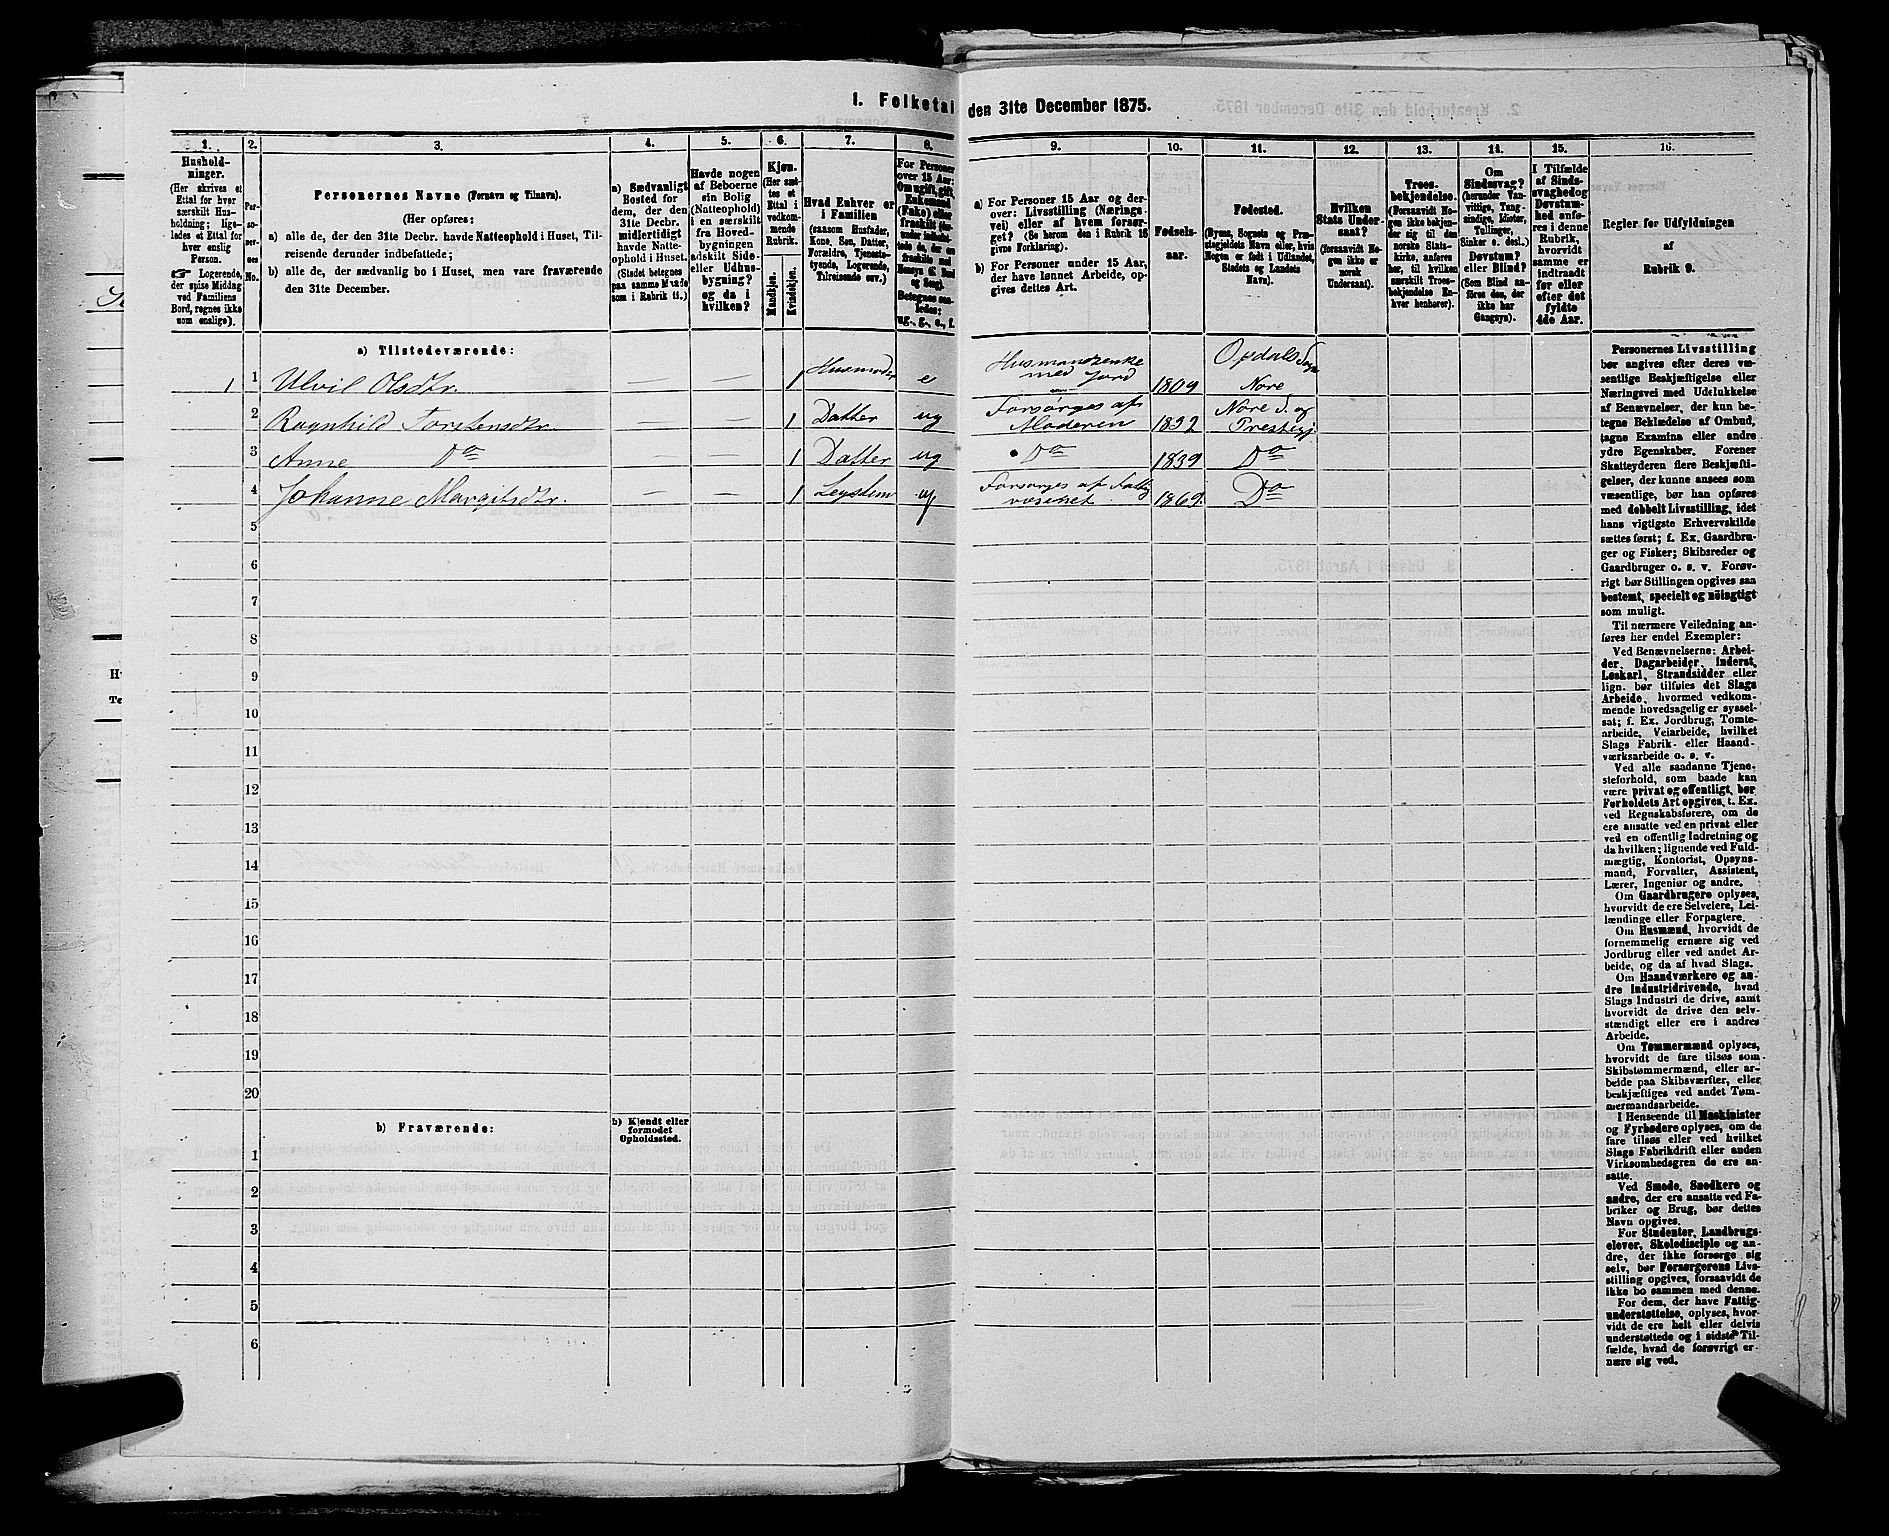 1. Folketal den 31te December 1875.
1.
2.
3.
4.
5.
6.
7.
8.
9.
10.
11.
12.
13.
14.
15.
16.
Hushold-
ninger.
(Her skrives et
Ettal for hver
særskilt Hus-
holdning; lige-
ledes et Ettal for
hver enslig
Person.
☞ Logerende,
der spise Middag
ved Familiens
Bord, regnes ikke
som enslige).
Per-
so-
ner-
nes
No.
Personernes Navne (Fornavn og Tilnavn).
(Her opføres:
a) alle de, der den 31te Decbr. havde Natteophold i Huset, Til-
reisende derunder indbefattede;
b) alle de, der sædvanlig bo i Huset, men vare fraværende
den 31te December.
a) Sædvanligt
Bosted for
dem, der den
31te Decbr.
midlertidigt
havde Natte-
ophold i Huset.
(Stedet betegnes
paa samme Maade
som i Rubrik 11.)
Havde nogen
af Beboerne
sin Bolig
(Natteophold)
i en særskilt
fra Hoved-
bygningen
adskilt Side-
eller Udhus-
bygning?
og da i
hvilken?
Kjøn.
(Her sæt-
tes et
Ettal i
vedkom-
mende
Rubrik.
Mandkjøn.
Kvindekjøn.
Hvad Enhver er
i Familien
(saasom Husfader,
Kone, Søn, Datter,
Forældre, Tjeneste-
tyende, Logerende,
Tilreisende osv.)
For Personer
over 15 Aar:
Om ugift, gift,
Enkemand
(Enke) eller
fraskilt
a) For Personer 15 Aar og der-
over: Livsstilling (Nærings-
vei) eller af hvem forsør-
get? (Se herom den i Rubrik 16
givne Forklaring).
b) For Personer under 15 Aar,
der have lønnet Arbeide, op-
gives dettes Art.
Fødsels-
aar.
Fødested.
(Byens, Sognets og Præ-
stegjeldets Navn eller, hvis
Nogen er født i Udlandet,
Stedets og Landets
Navn).
Hvilken
Stats Under-
saat?
(forsaavidt No-
gen ikke er
norsk
Undersaat).
Troes-
bekjendelse.
(Forsaavidt No-
gen ikke bekjen-
der sig til den
norske Stats-
kirke, anføres
her, til hvilken
særskilt Troes-
bekjendelse En-
hver henhører).
Om
Sindssvag?
(herunder Van-
vittige, Tung-
sindige, Idioter,
Tullinger,
Sinker o. desl.)
Døvstum?
eller Blind?
(Som Blind an-
føres den, der
ikke har
Gangsyn).
I Tilfælde
af Sinds-
svaghed og
Døvstum-
hed anfø-
res i denne
Rubrik,
hvorvidt
samme er
indtraadt
før eller
efter det
fyldte
4de Aar.
Regler for Udfyldningen
af
Rubrik 9.
a) Tilstedeværende:
1 1 Ulvil Olsdtr. — — 1 Husmoder e Husmandsenke med Jord 1809 Opdals Sogn Nore
2 Ragnhild Torstensdtr. — — 1 Datter ug Forsørges af Moderen 1832 Nore S. og Prestegj.
3 Anne Do — — 1 Datter ug Do 1839 Do
4 Johanne Margitsdtr. — — 1 Legslem ug Forsørges af Fattigvæsenet 1869 Do
5
6
7
8
9
10
11
12
13
14
15
16
17
18
19
20
b) Fraværende:
b) Kjendt eller
formodet
Opholdssted.
1
2
3
4
5
6
Personernes Livsstilling
bør angives efter deres væ-
sentlige Beskjæftigelse eller
Næringsvei med Udelukkelse
af Benævnelser, der kun be-
tegne Beklædelse af Ombud,
tagne Examina eller andre
ydre Egenskaber. Forener
Skatteyderen flere Beskjæfti-
gelser, der kunne ansees som
væsentlige, bør han opføres
med dobbelt Livsstilling, idet
hans vigtigste Erhvervskilde
sættes først; f. Ex. Gaardbru-
ger og Fisker; Skibsreder og
Gaardbruger o. s. v. Forøv-
rigt bør Stillingen opgives saa
bestemt, specielt og nøiagtigt
som muligt.
Til nærmere Veiledning an-
føres her endel Exempler:
Ved Benævnelserne: Arbei-
der, Dagarbeider, Inderst,
Løskarl, Strandsidder eller
lign. bør tilføies det Slags
Arbeide, hvormed vedkom-
mende hovedsagelig er syssel-
sat; f. Ex. Jordbrug, Tomte-
arbeide, Veiarbeide, hvilket
Slags Fabrik- eller Haand-
værksarbeide o. s. v.
Ved alle saadanne Tjene-
steforhold, som baade kan
være privat og offentligt, bør
Forholdets Art opgives, t. Ex.
ved Regnskabsførere, om de
ere ansatte ved en privat eller
ved en offentlig Indretning og
da hvilken; lignende ved Fuld-
mægtig, Kontorist, Opsyns-
mand, Forvalter, Assistent,
Lærer, Ingeniør og andre.
Om Gaardbrugere oplyses,
hvorvidt de ere Selveiere, Lei-
lændinge eller Forpagtere.
Om Husmænd, hvorvidt de
fornemmelig ernære sig ved
Jordbrug eller ved andet Ar-
beide, og da af hvad Slags.
Om Haandværkere og an-
dre Industridrivende, hvad
Slags Industri de drive, samt
hvorvidt de drive den selv-
stændigt eller ere i andres
Arbeide.
Om Tømmermænd oplyses,
hvorvidt de fare tilsøs som
Skibstømmermænd, eller ar-
beide paa Skibsværfter, eller
beskjæftiges ved andet Tøm-
mermandsarbeide.
I Henseende til Maskinister
og Fyrbødere oplyses, om de
fare tilsøs eller ved hvilket
Slags Fabrikdrift eller anden
Virksomhedsgren de ere an-
satte.
Ved Smede, Snedkere og
andre, der ere ansatte ved Fa-
briker og Brug, bør dettes
Navn opgives.
For Studenter, Landbrugs-
elever, Skoledisciple og an-
dre, der ikke forsørge sig
selv, bør Forsørgerens Livs-
stilling opgives, forsaavidt de
ikke bo sammen med denne.
For dem, der have Fattig-
understøttelse, oplyses, hvor-
vidt de ere helt eller delvis
understøttede og i sidste Til-
fælde, hvad de forøvrigt er-
nære sig ved.